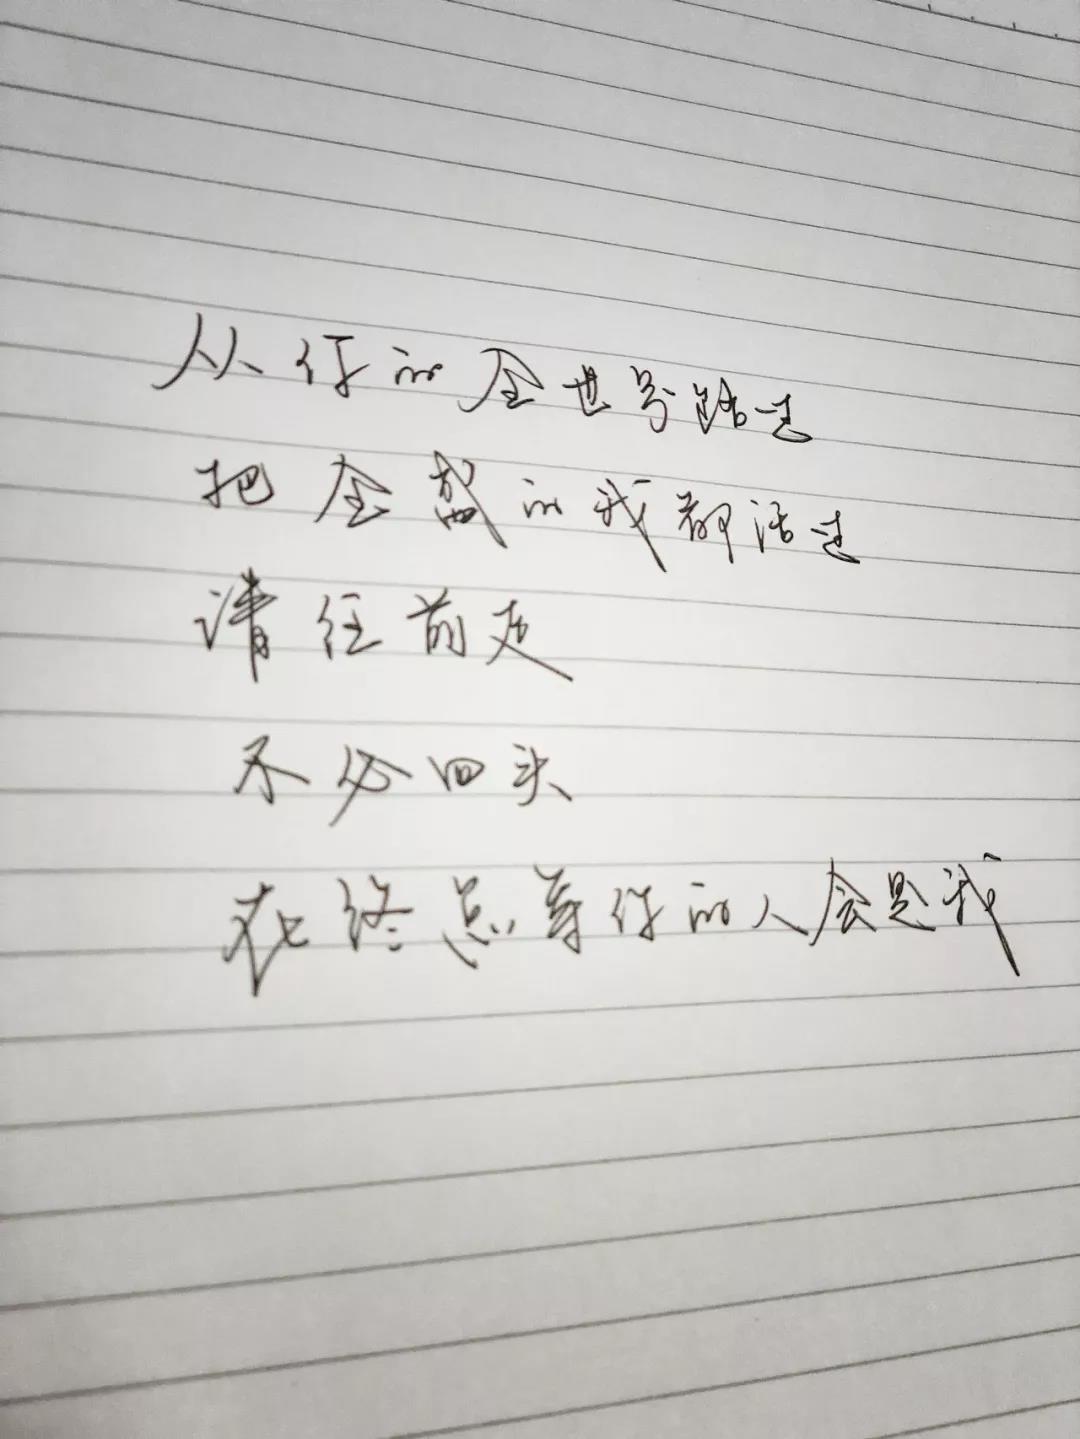 从你的全世界路过
把全盛的我都活过
请往前走
不必回头
在终点等你的人会是我